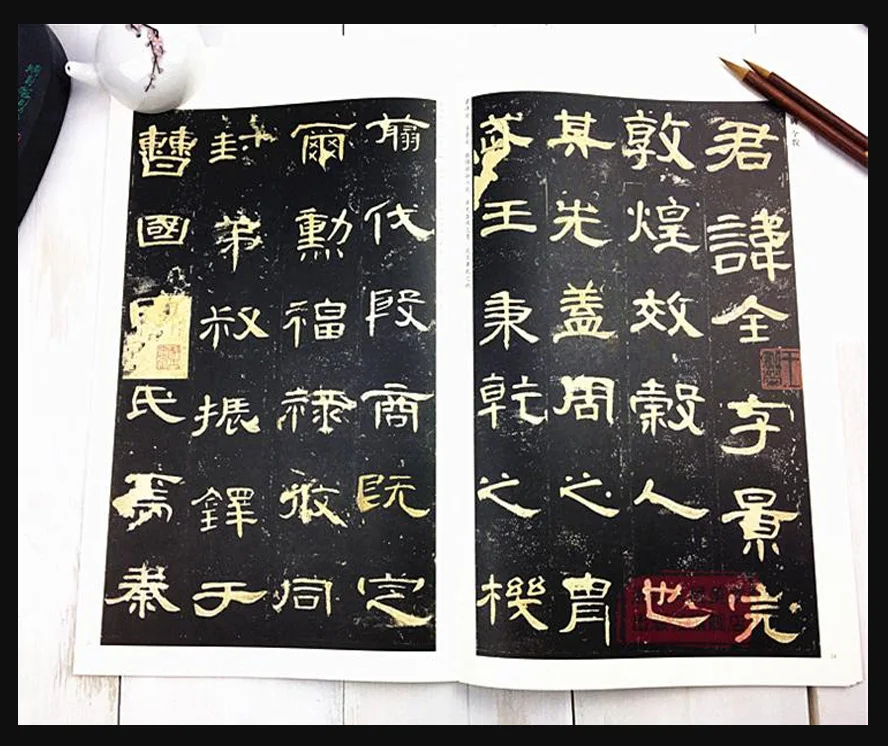 君諱全字景完
敦煌效穀人也
其先蓋周之胄
王秉乾之機
翦伐殷商既定
爾勳福祿攸同
封弟叔振鐸于
曹國氏焉秦